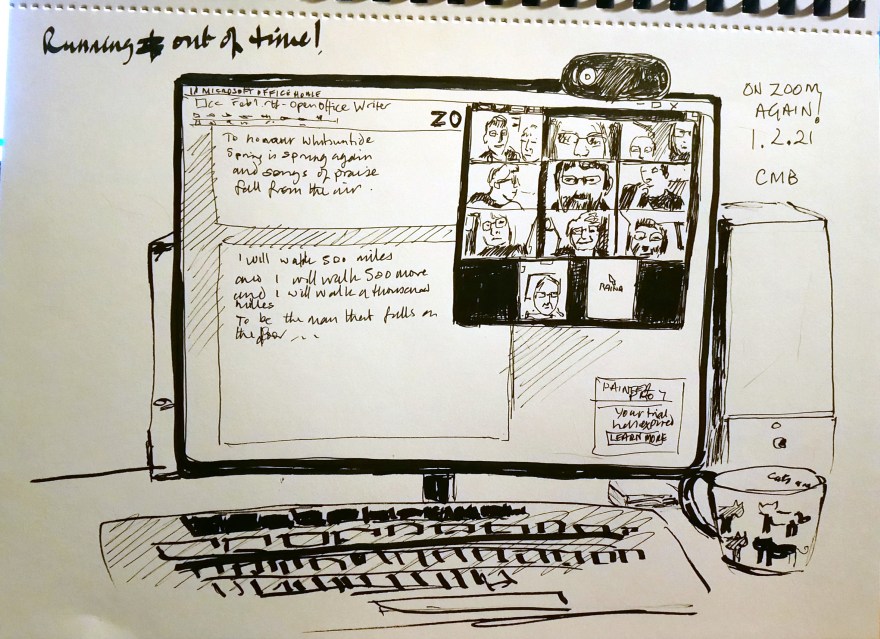 Running out of time!
ON ZOOM
AGAIN!
1.2.21
CMB
MICROSOFT OFFICE HOME
Feb1.rtf - OpenOffice Writer
ZO
To honour Whitsuntide
Spring is spring again
and songs of praise
fall from the air.
I will walk 500 miles
and I will walk 500 more
and I will walk a thousand
miles
To be the man that falls on
the floor ...
RAINA
PAINTER
PRO 7
Your trial
has expired
LEARN MORE
Cats